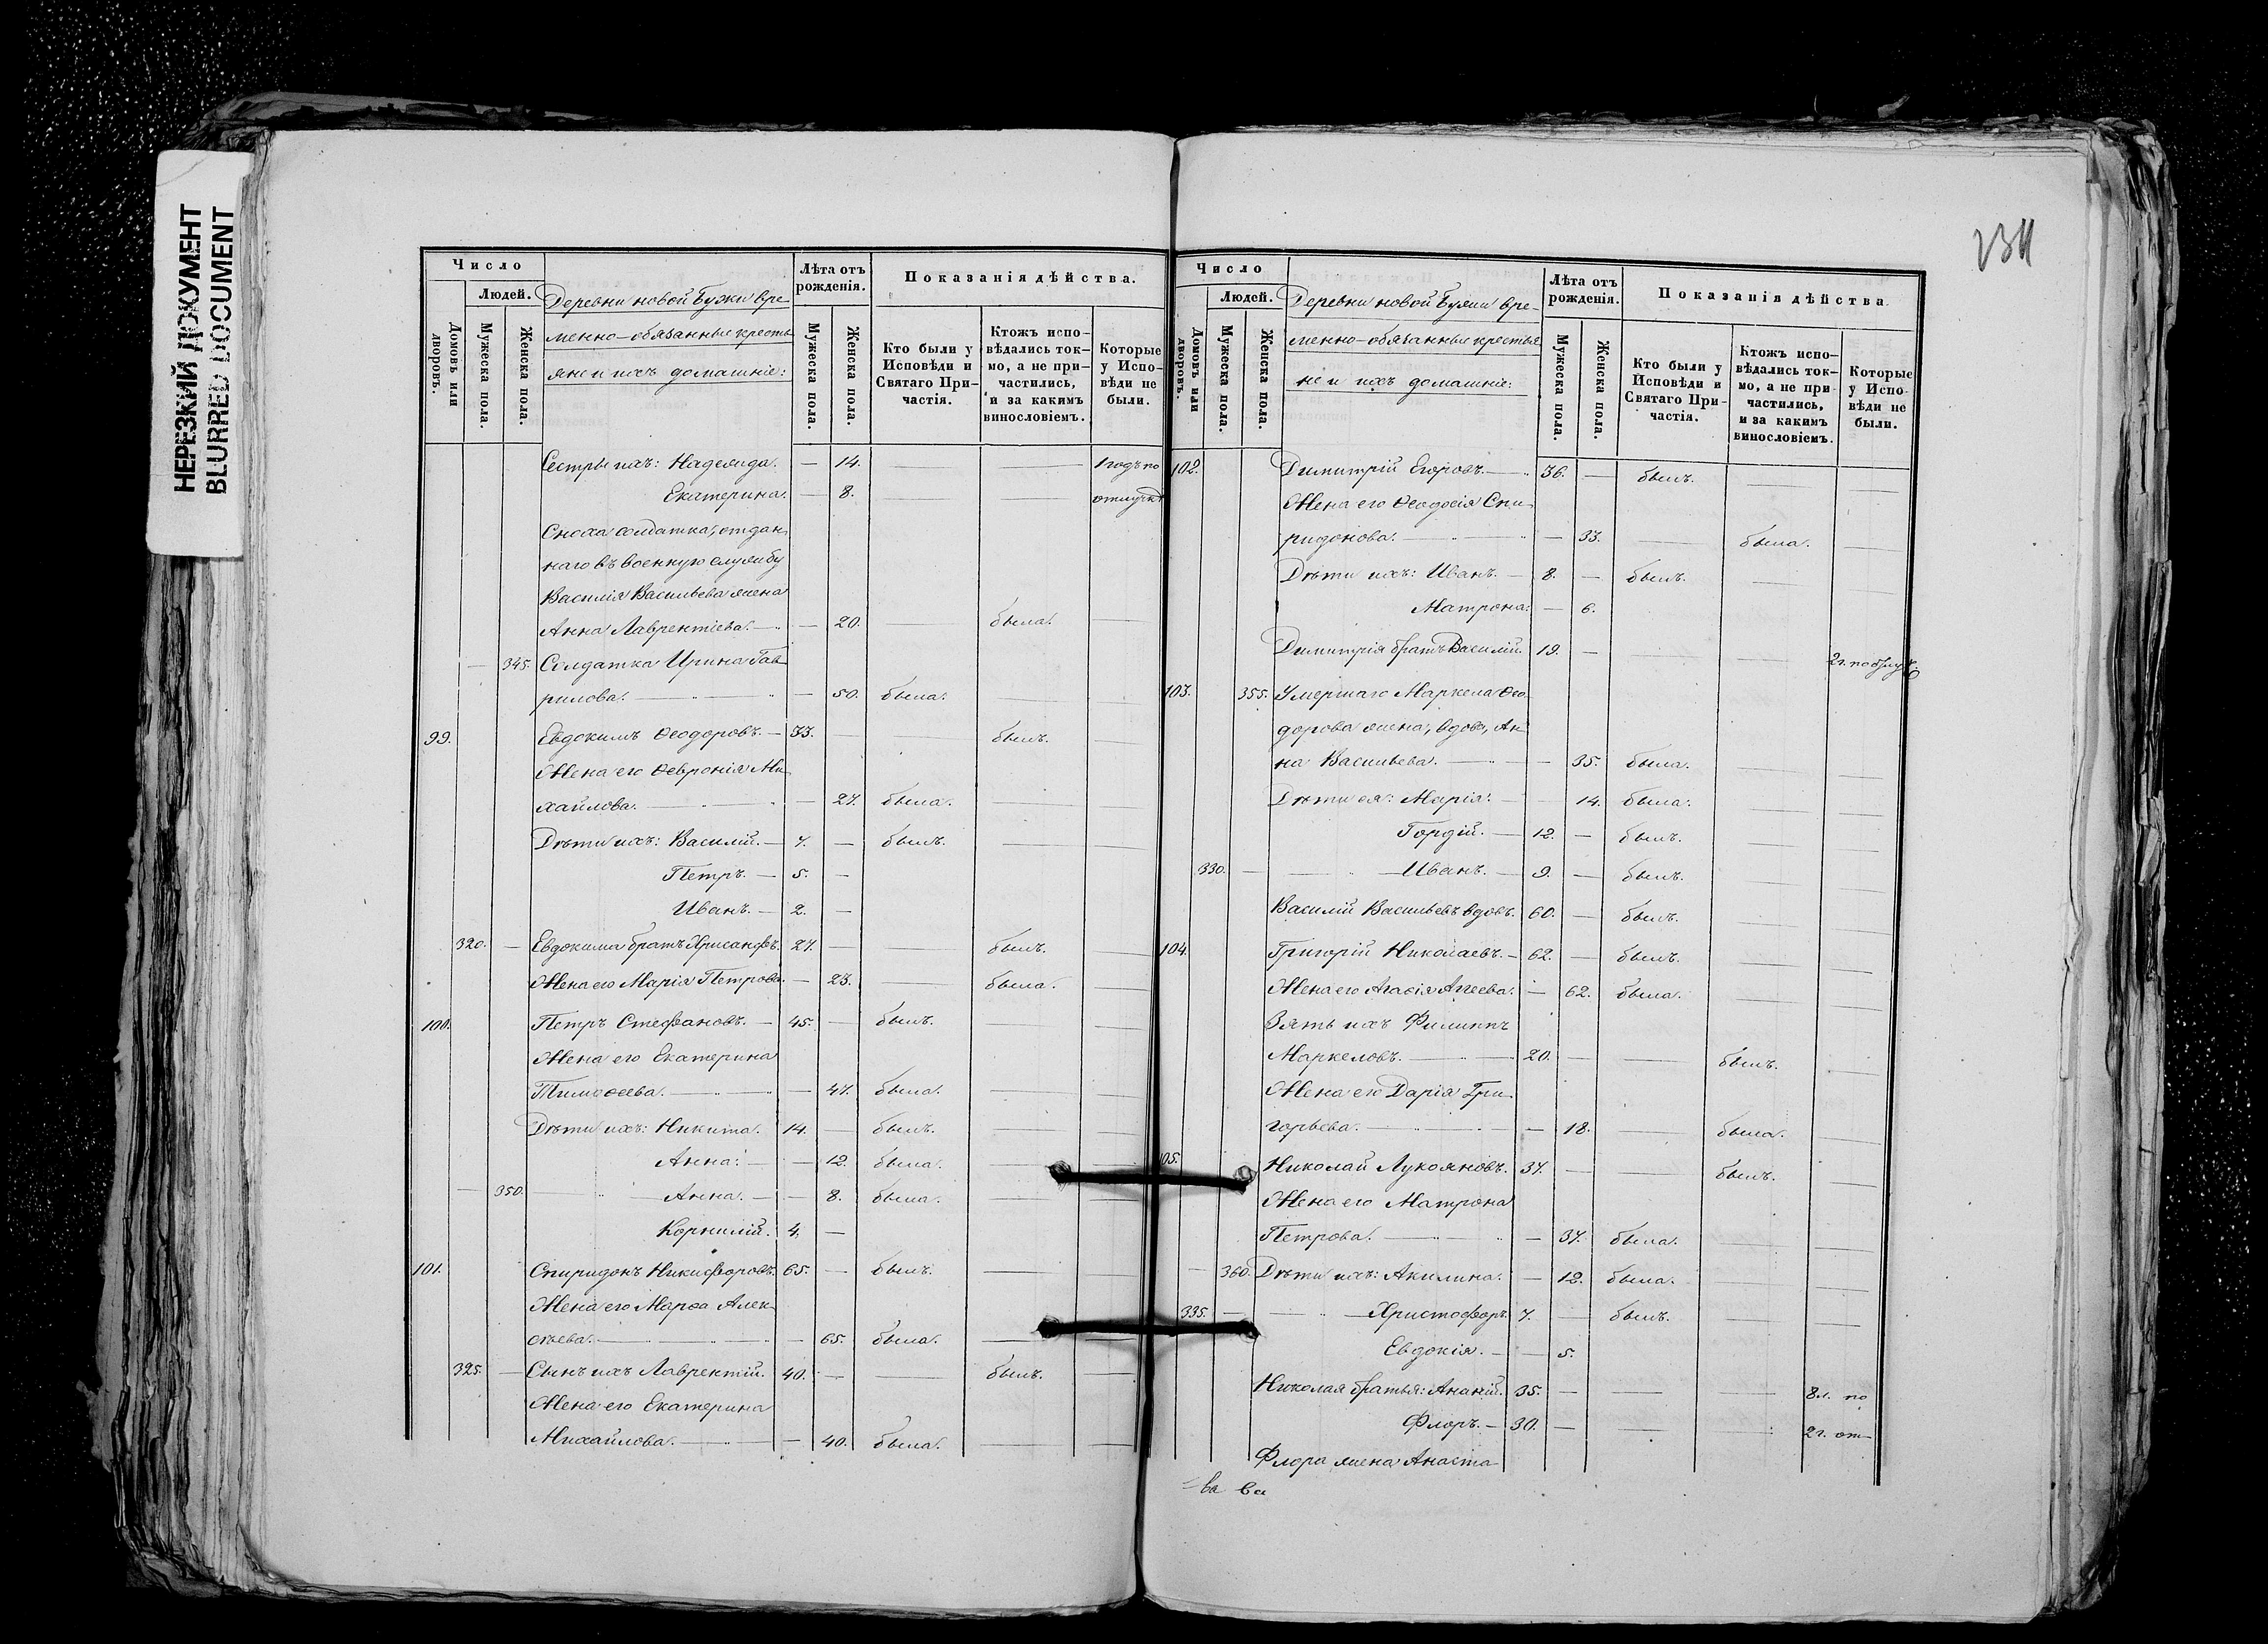 НЕРЕЗКИЙ ДОКУМЕНТ
BLURRED DOCUMENT
Число
Людей.
Домовъ или дворовъ.
Мужеска пола.
Женска пола.
Деревни новой Бужи вре
менно-обязанные кресть
яне и ихъ домашніе:
Лѣта отъ рожденія.
Мужеска пола.
Женска пола.
Показанія дѣйства.
Кто были у Исповѣди и Святаго При-частія.
Ктожъ испо-вѣдались ток-мо, а не при-частились, и за какимъ винословіемъ.
Которые у Испо-вѣди не были.
Сестры ихъ: Надежда. — 14. — — 1 годъ по
Екатерина. — 8. — — отлучкѣ
Сноха солдатка, отдан
наго въ военную службу
Василія Васильева жена
Анна Лаврентіева. — — 20. — была. —
— 345. Солдатка Ирина Гав
рилова. — — 50. была. — —
99. Евдокимъ Ѳеодоровъ. — 33. — — былъ. —
Жена его Ѳевронія Ми
хайлова. — — 27. была. — —
Дѣти ихъ: Василій. — 7. — былъ. — —
Петръ. — 5. —
Иванъ. — 2. —
320. — Евдокима братъ Хрисанфъ. 27. — — былъ. —
Жена его Марія Петрова. — 23. — была. —
100. Петръ Стефановъ. — 45. — былъ. — —
Жена его Екатерина
Тимоѳеева. — — 47. была. — —
Дѣти ихъ: Никита. 14. — былъ. — —
Анна. — — 12. была. — —
— 350. — Анна. — — 8. была. — —
Корнилій. 4. —
101. Спиридонъ Никифоровъ. 65. — былъ. — —
Жена его Марѳа Алек
сѣева. — — 65. была. — —
325. — Сынъ ихъ Лаврентій. 40. — — былъ. —
Жена его Екатерина
Михайлова. — — 40. была. — —
Число
Людей.
Домовъ или дворовъ.
Мужеска пола.
Женска пола.
Деревни новой Бужи вре-
менно-обязанные крестья
не и ихъ домашніе:
Лѣта отъ рожденія.
Мужеска пола.
Женска пола.
Показанія дѣйства
Кто были у Исповѣди и Святаго При-частія.
Ктожъ испо-вѣдались ток-мо, а не при-частились, и за какимъ винословіемъ.
Которые у Испо-вѣди не были.
102. Димитрій Егоровъ. — 36. — былъ. — —
Жена его Ѳеодосія Спи
ридонова. — — 33. — была. —
Дѣти ихъ: Иванъ. — 8. — былъ. — —
Матрона. — 6.
Димитрія братъ Василій. 19. — — — 2 г. по
103. 355. Умершаго Маркела Ѳео
дорова жена, вдова, Ан
на Васильева. — — 35. была. — —
Дѣти ея: Марія. — 14. была. — —
Гордій. — 12. — былъ. — —
330. — — Иванъ. — 9. — былъ. — —
Василій Васильевъ вдовъ. 60. — былъ. — —
104. Григорій Николаевъ. — 62. — былъ. — —
Жена его Агаѳія Агѣева. — 62. была. — —
Зять ихъ Филиппъ
Маркеловъ. — 20. — — былъ. —
Жена его Дарія Гри
горьева. — — 18. — была. —
105. Николай Лукояновъ. 37. — — былъ. —
Жена его Матрона
Петрова. — — 37. была. — —
— 360. Дѣти ихъ: Акилина. — 12. была. — —
335. — — Христофоръ. 7. — былъ. — —
Евдокія. — — 5.
Николая братья: Ананій. 35. — — — 8 л. по
Флоръ. — 30. — — — 2 г. от-
Флора жена Анаста
ва ва